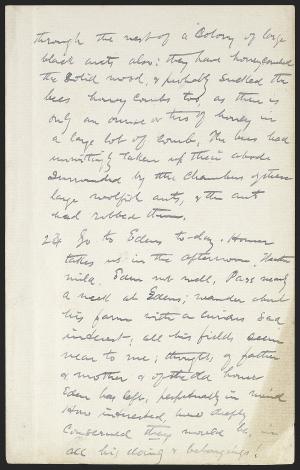 through the nest of a Colony of large
black ants also; they have honeycombed
the solid wood, & probably sucked the
bees honey combs too, as there is
only an ounce or two of honey in
a large lot of comb. The bees had
unwittingly taken up their abode
surrounded by the chambers of these
large wolfish ants, & the ants
had robbed them.
24 Go to Edens to-day. Homer
takes us in the afternoon. Weather
mild. Eden not well. Pass nearly
a week at Edens; wander about
his farm with a curious sad
interest; all his fields seem
near to me; thoughts of father
& mother & of the old home
Eden has left, perpetually in mind
How interested, how deeply
Concerned they would be, in
all his doing & belongings!